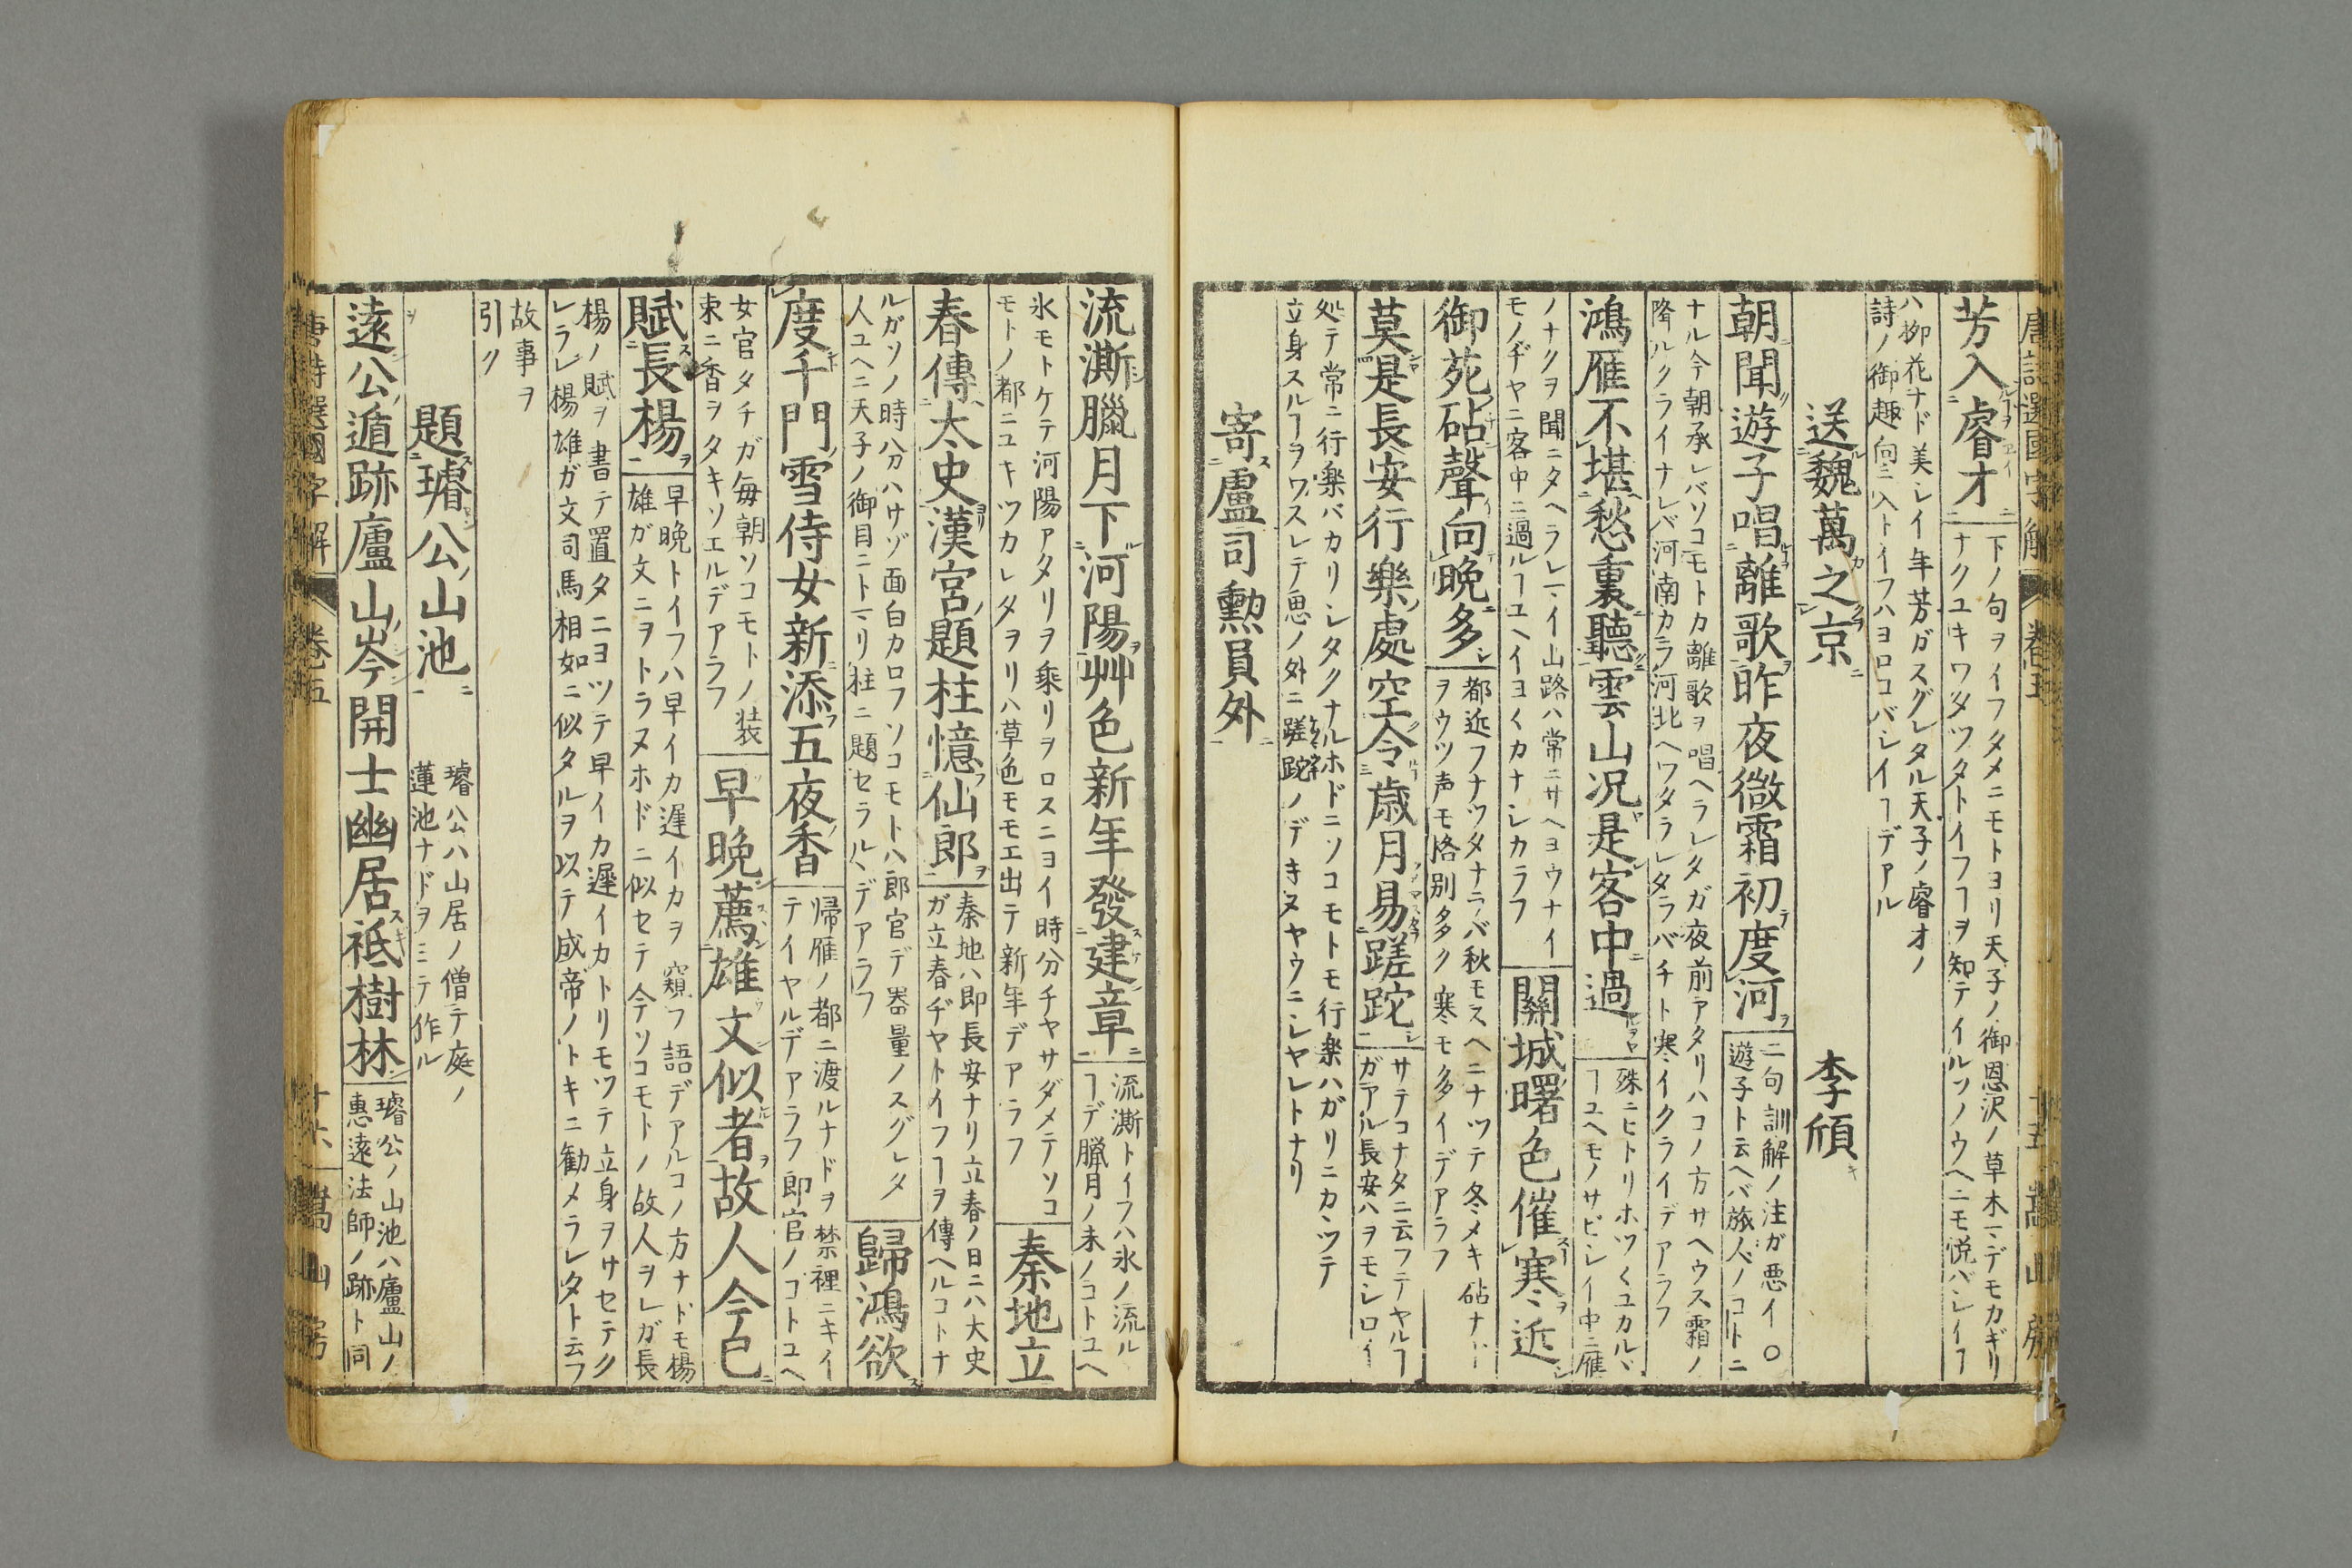 唐詩選國字解 卷五 十五 嵩山房
芳入睿才
下ノ句ヲイフタメニモトヨリ天子ノ御恩沢ノ草木マデモカギリ
ナクユキワタツタトイフヿヲ知テイルソノウヘニモ悦バシイヿ
ハ柳花ナド美シイ年芳ガスグレタル天子ノ睿才ノ
詩ノ御趣向ニ入トイフハヨロコバシイヿデアル
送魏萬之京 李頎
朝聞遊子唱離歌昨夜微霜初度河
二句訓解ノ注ガ悪イ○
遊子ト云ヘバ旅人ノコトニ
ナル今朝承レバソコモトカ離歌ヲ唱ヘラレタガ夜前アタリハコノ方サヘウス霜ノ
降ルクライナレバ河南カラ河北ヘワタラレタラバチト寒イクライデアラフ
鴻雁不堪愁裏聽雲山况是客中過
殊ニヒトリホツ〱ユカルヽ
ヿユヘモノサビシイ中ニ雁
ノナクヲ聞ニタヘラレマイ山路ハ常ニサヘヨウナイ
モノヂヤニ客中ニ過ルヿユヘイヨ〱カナシカラフ
關城曙色催寒近
御苑砧聲向晩多
都近フナツタナラバ秋モスヘニナツテ冬メキ砧ナド
ヲウツ声モ格別多ク寒モ多イデアラフ
莫是長安行樂處空令歳月易蹉跎
サテコナタニ云フテヤルヿ
ガアル長安ハヲモシロイ
処テ常ニ行楽バカリシタクナルホドニソコモトモ行楽ハガリニカヽツテ
立身スルヿヲワスレテ思ノ外ニ蹉跎ノデキヌヤウニシヤレトナリ
寄盧司勲員外
流澌臘月下河陽艸色新年發建章
流澌トイフハ氷ノ流ル
ヿデ臘月ノ末ノコトユヘ
氷モトケテ河陽アタリヲ乗リヲロスニヨイ時分ヂヤサダメテソコ
モトノ都ニユキツカレタヲリハ草色モモエ出テ新年デアラフ
秦地立
春傳太史漢宮題柱憶仙郎
秦地ハ即長安ナリ立春ノ日ニハ大史
ガ立春ヂヤトイフヿヲ傳ヘルコトナ
ルガソノ時分ハサゾ面白カロフソコモトハ郎官デ器量ノスグレタ
人ユヘニ天子ノ御目ニトマリ柱ニ題セラルヽデアラフ
歸鴻欲
度千門雪侍女新添五夜香
帰雁ノ都ニ渡ルナドヲ禁裡ニキイ
テイヤルデアラフ郎官ノコトユヘ
女官タチガ毎朝ソコモトノ装
束ニ香ヲタキソエルデアラフ
早晩薦雄文似者故人今已
賦長楊
早晩トイフハ早イカ遅イカヲ窺フ語デアルコノ方ナドモ楊
雄ガ文ニヲトラヌホドニ似セテ今ソコモトノ故人ヲレガ長
楊ノ賦ヲ書テ置タニヨツテ早イカ遅イカトリモツテ立身ヲサセテク
レラレ楊雄ガ文司馬相如ニ似タルヲ以テ成帝ノトキニ勧メラレタト云フ
故事ヲ
引ク
題璿公山池
璿公ハ山居ノ僧テ庭ノ
蓮池ナドヲミテ作ル
遠公遁跡廬山岑開士幽居祇樹林
璿公ノ山池ハ廬山ノ
惠遠法師ノ跡ト同
唐詩選國字解 卷五 十六 嵩山房